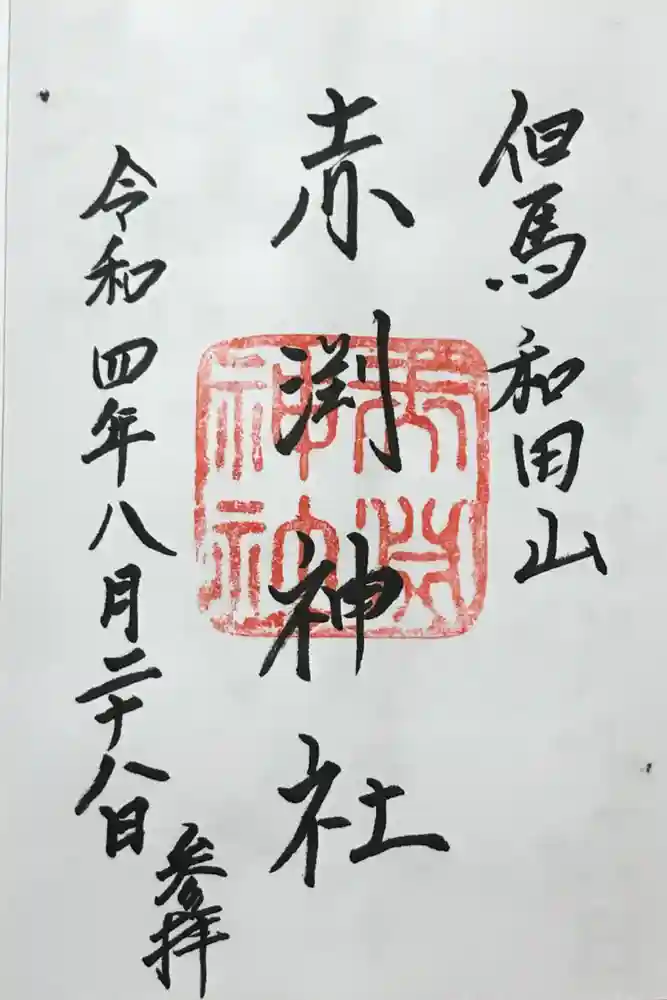 但馬和田山
赤渕神社
令和四年八月二十八日
参拝